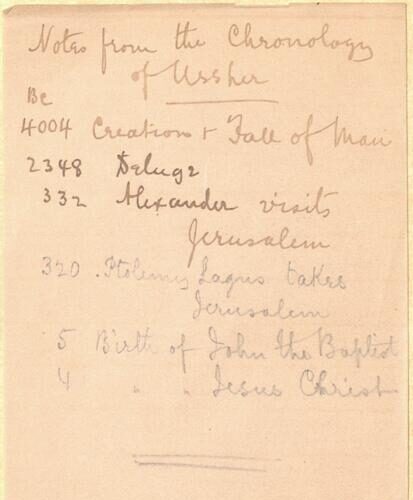 Notes from the Chronology
of Ussher
BC
4004 Creation & Fall of Man
2348 Deluge
332 Alexander visits
Jerusalem
320 . Ptolemy Lagus takes
Jerusalem
5 Birth of John the Baptist
4 " " Jesus Christ